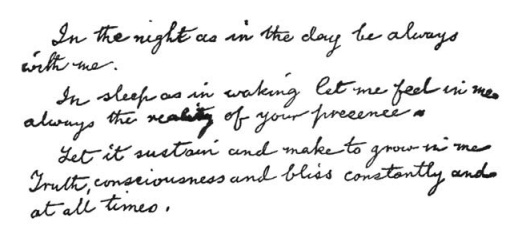 In the night as in the day be always
with me.
In sleep as in waking let me feel in me
always the reality of your presence.
Let it sustain and make to grow in me
Truth, consciousness and bliss constantly and
at all times.